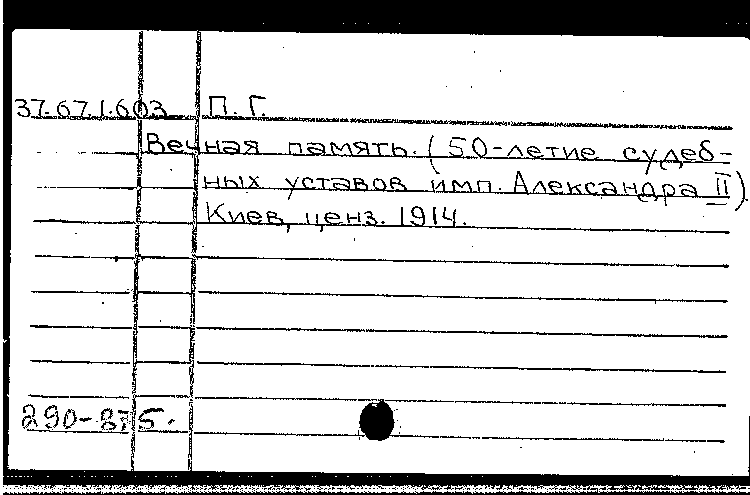 37.67.1.603 П. Г.
Вечная память. (50-летие судеб-
ных уставов имп. Александра II).
Киев, ценз. 1914.
290-875.